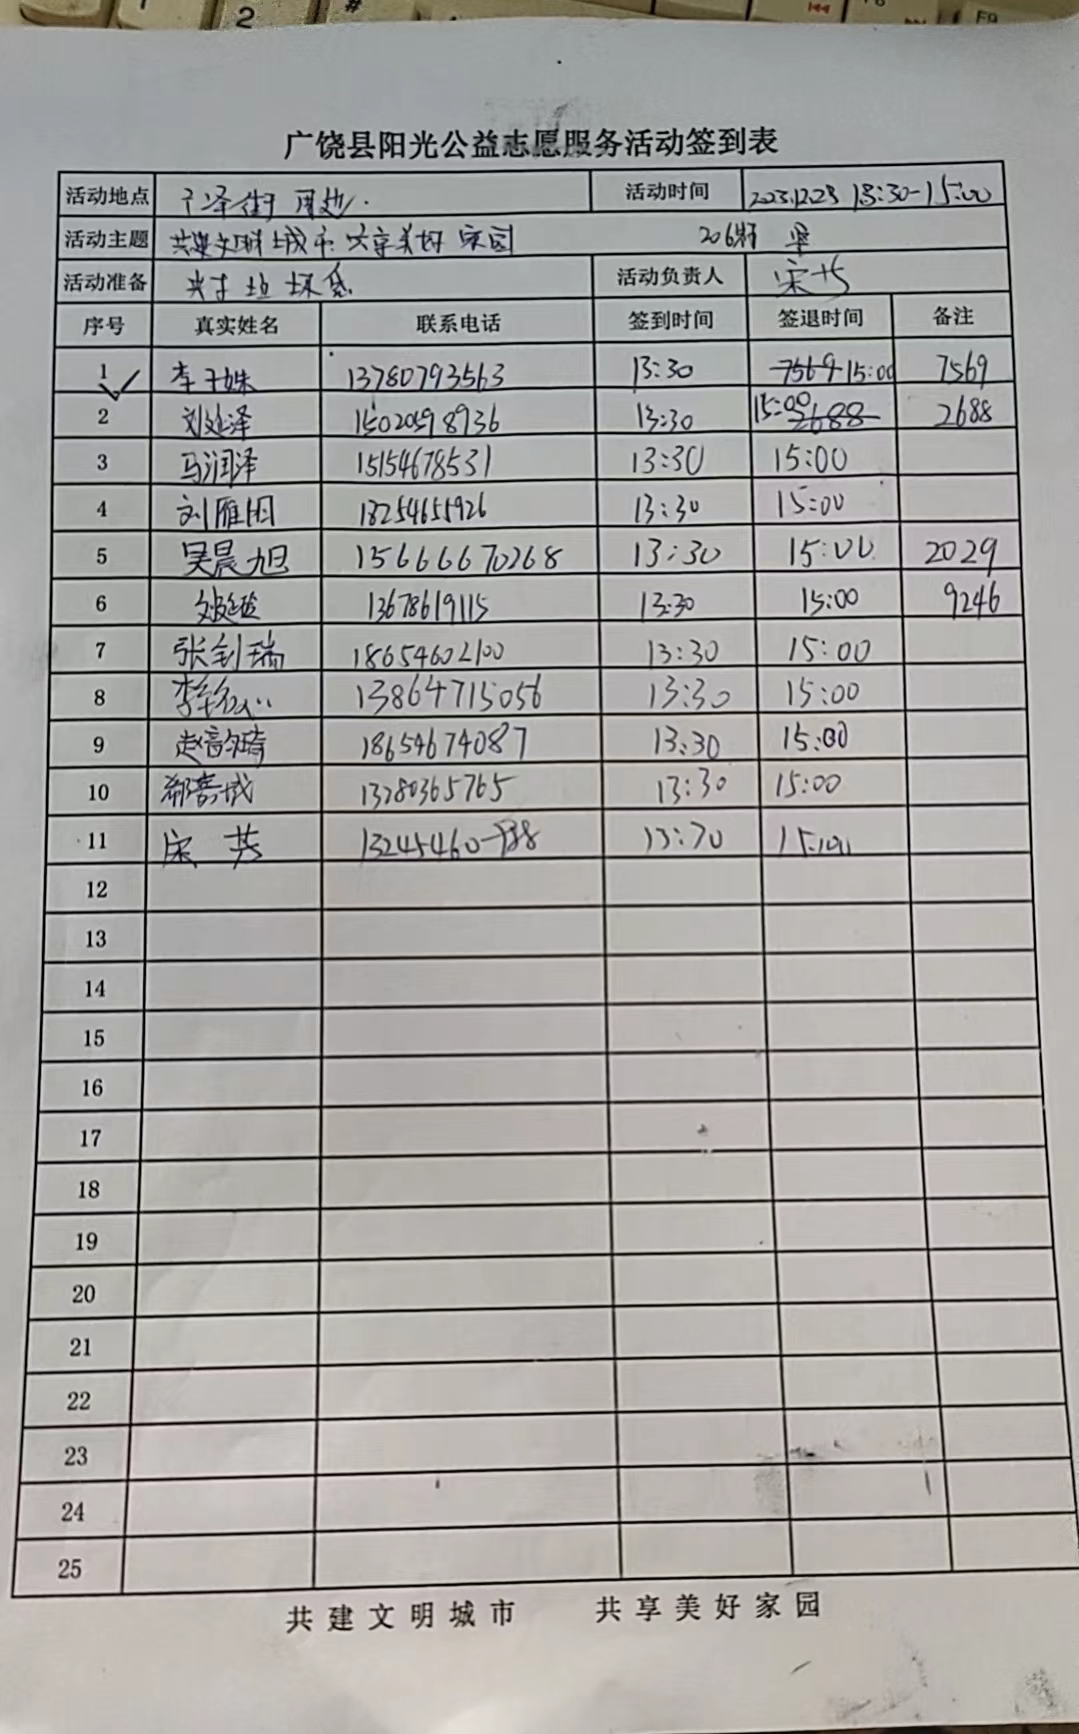 广饶县阳光公益志愿服务活动签到表
活动地点 街 周边. 活动时间 2023.12.23 13:30-15:00
活动主题 共建文明城市 共享美好家园 206
活动准备 垃圾袋 活动负责人 宋芳
序号 真实姓名 联系电话 签到时间 签退时间 备注
1 李子姝 13780793563 13:30 7569 15:00 7569
2 刘延泽 15020598936 13:30 15:00 2688 2688
3 马润泽 15154678531 13:30 15:00
4 刘雁 18254651926 13:30 15:00
5 吴晨旭 15666670268 13:30 15:00 2029
6 13678619115 13:30 15:00 9246
7 张钊瑞 18654602100 13:30 15:00
8 李 13864715056 13:30 15:00
9 赵 18654674087 13:30 15:00
10 13280365765 13:30 15:00
11 宋芳
12
13
14
15
16
17
18
19
20
21
22
23
24
25
共建文明城市 共享美好家园